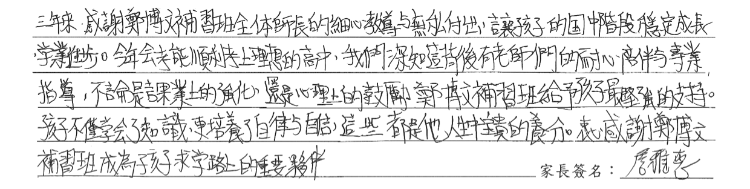 三年來,感謝鄭博文補習班全体師長的細心教導与無私付出,讓孩子的国中階段穩定成長
学業進步。今年会考能順利考上理想的高中,我們深知這背後有老師們的耐心陪伴与專業
指導,不論是課業上的強化,還是心理上的鼓勵,鄭博文補習班給予孩子最堅強的支持。
孩子不僅学会了知識,更培養了自律与自信,這些都是他人生中寶貴的養分。衷心感謝鄭博文
補習班成為孩子求学路上的重要夥伴
家長簽名: